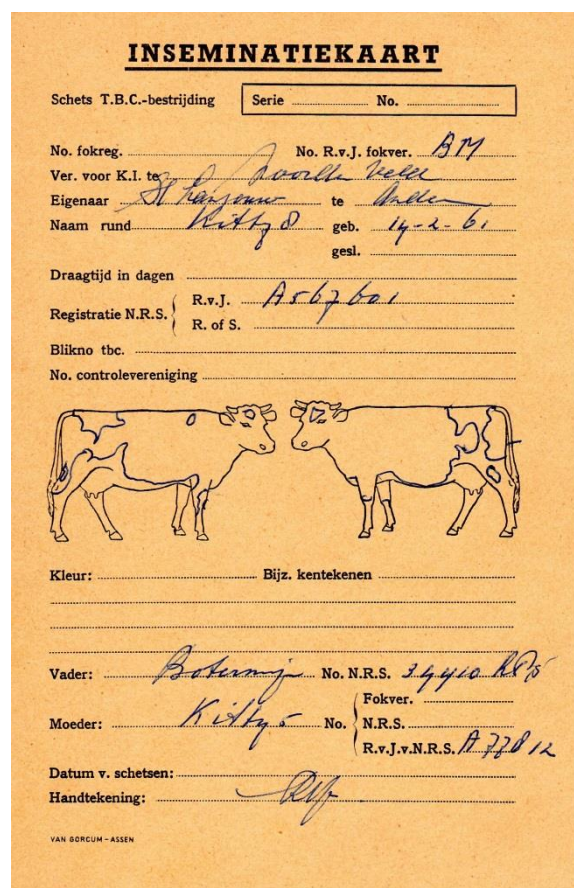 INSEMINATIEKAART
Schets T.B.C.-bestrijding Serie No.
No. fokreg. No. R.v.J. fokver. BM
Ver. voor K.I. te
Eigenaar te
Naam rund Kitty 8 geb. 14-2-61
gesl.
Draagtijd in dagen
Registratie N.R.S. R.v.J. A567601
R. of S.
Blikno tbc.
No. controlevereniging
Kleur: Bijz. kentekenen
Vader: No. N.R.S. 34410
Fokver.
Moeder: Kitty 5 No. N.R.S.
R.v.J.v.N.R.S. A 77812
Datum v. schetsen:
Handtekening:
VAN GORCUM – ASSEN